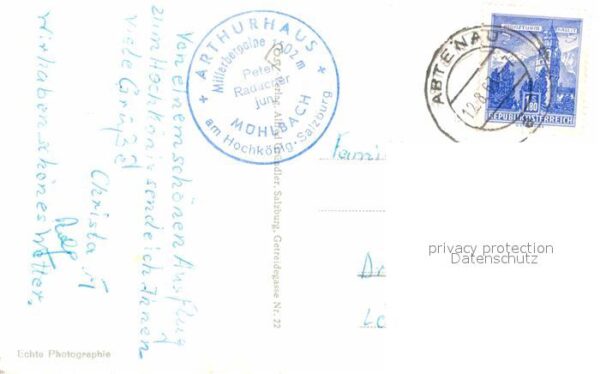 Von einem schönen Ausflug
zum Hochkönig sende ich Ihnen
viele Grüße
Christa
Wir haben schönes Wetter.
+ ARTHURHAUS +
Mitterbergalpe 1502 m
Peter
Radacher
jun.
MÜHLBACH
am Hochkönig-Salzburg
Salzburg, Getreidegasse Nr. 22
Echte Photographie
ABTENAU
12.8.6
1.80
REPUBLIK ÖSTERREICH
Fami
privacy protection
Datenschutz